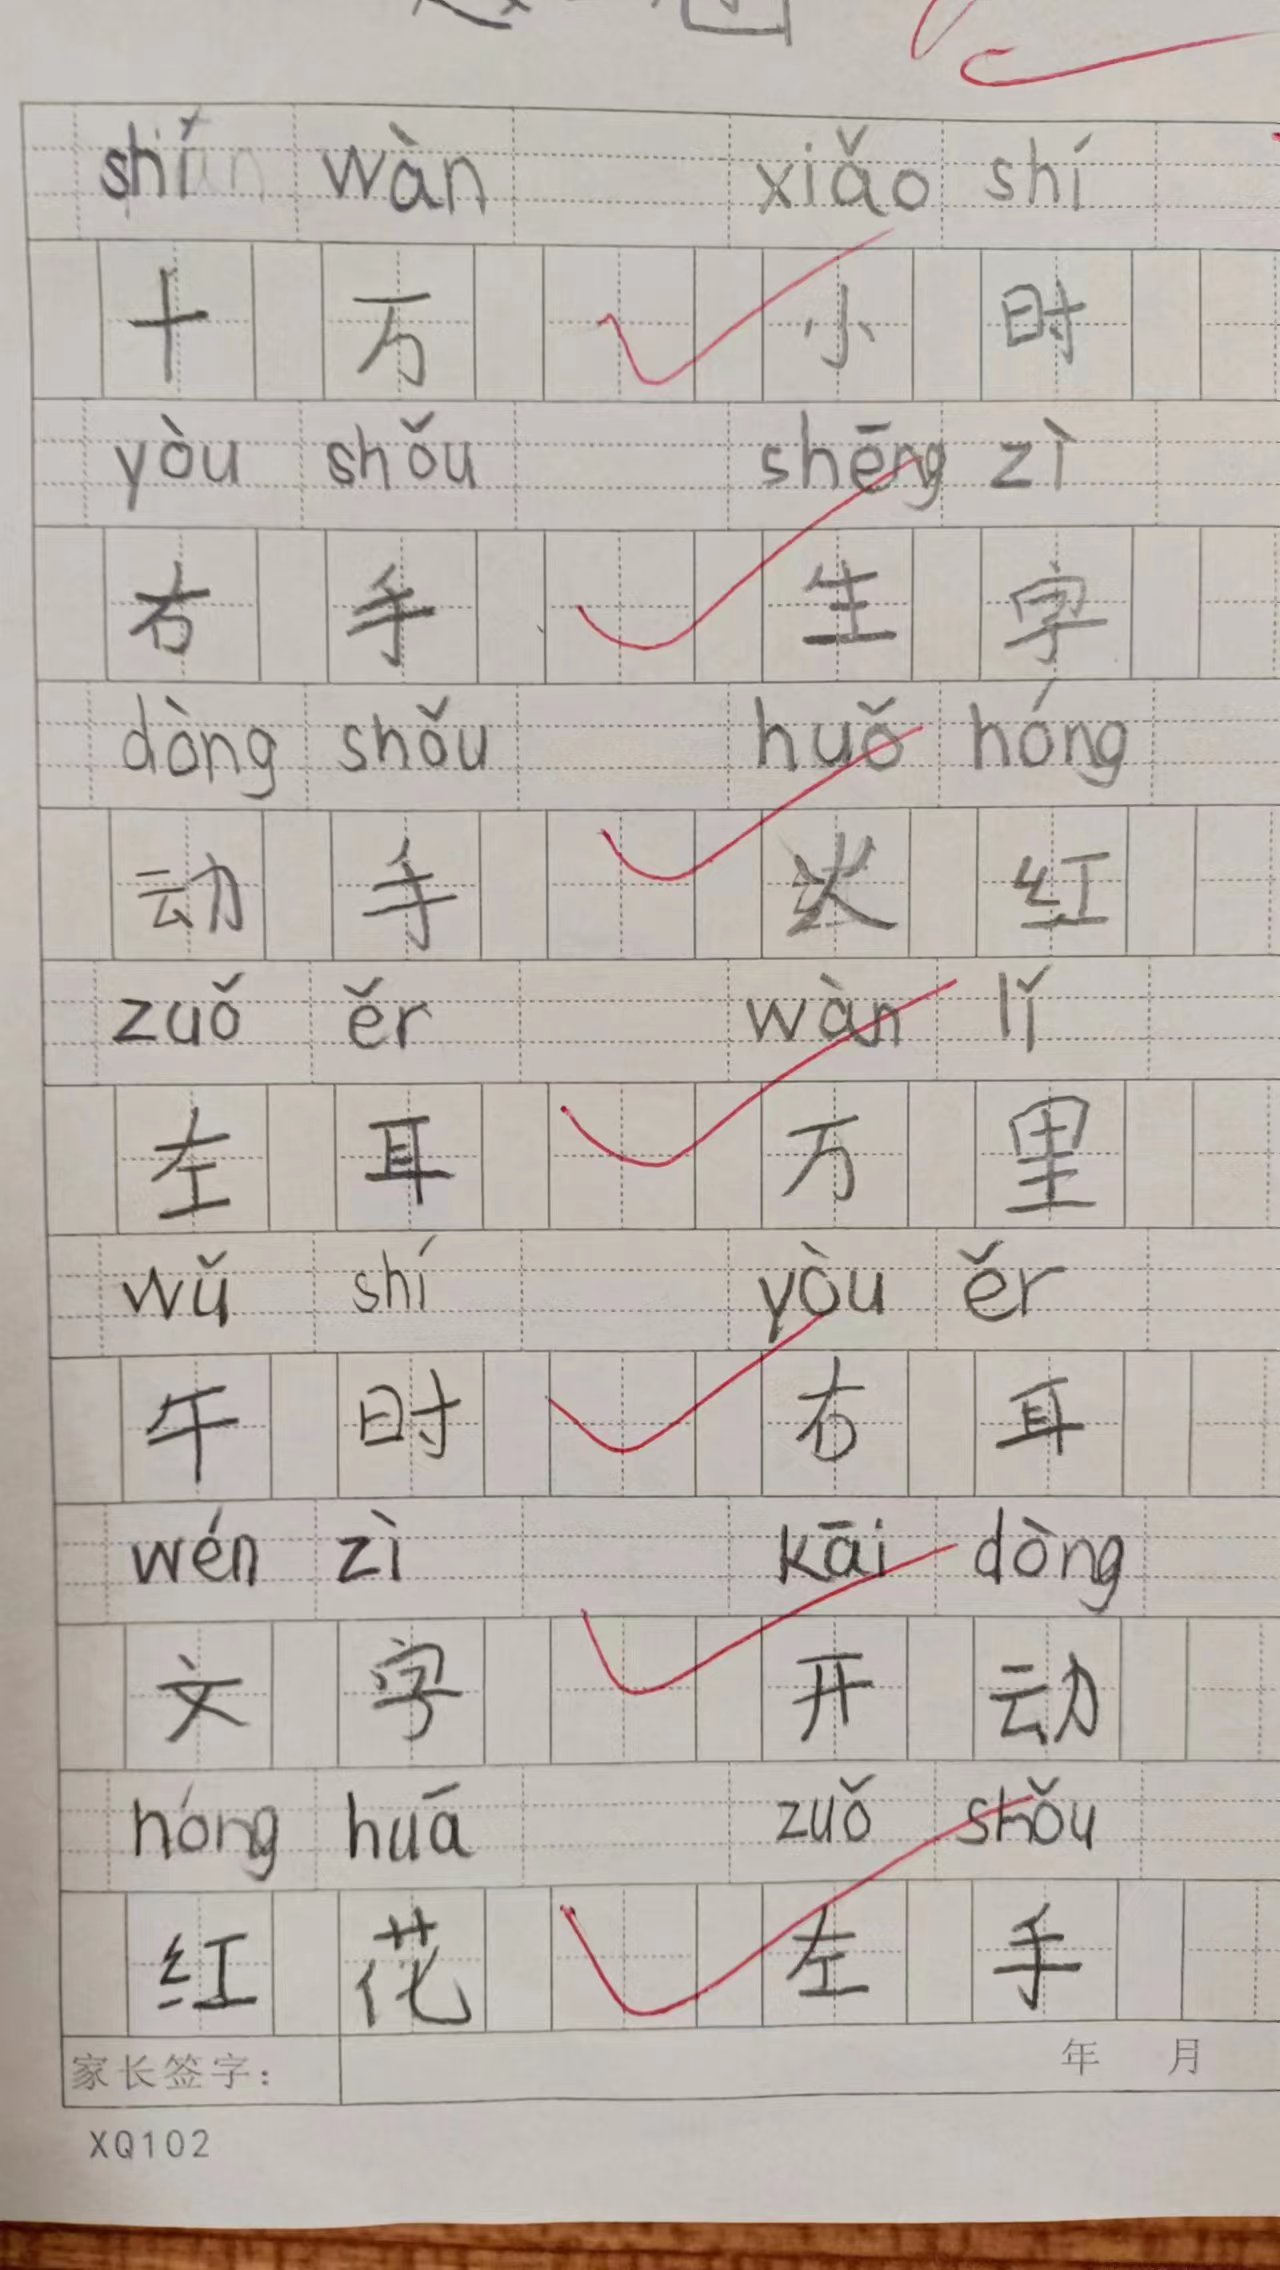 shí wàn xiǎo shí
十 万 小 时
yòu shǒu shēng zì
右 手 生 字
dòng shǒu huǒ hóng
动 手 火 红
zuǒ ěr wàn lǐ
左 耳 万 里
wǔ shí yòu ěr
午 时 右 耳
wén zì kāi dòng
文 字 开 动
hóng huā zuǒ shǒu
红 花 左 手
家长签字： 年 月
XQ102